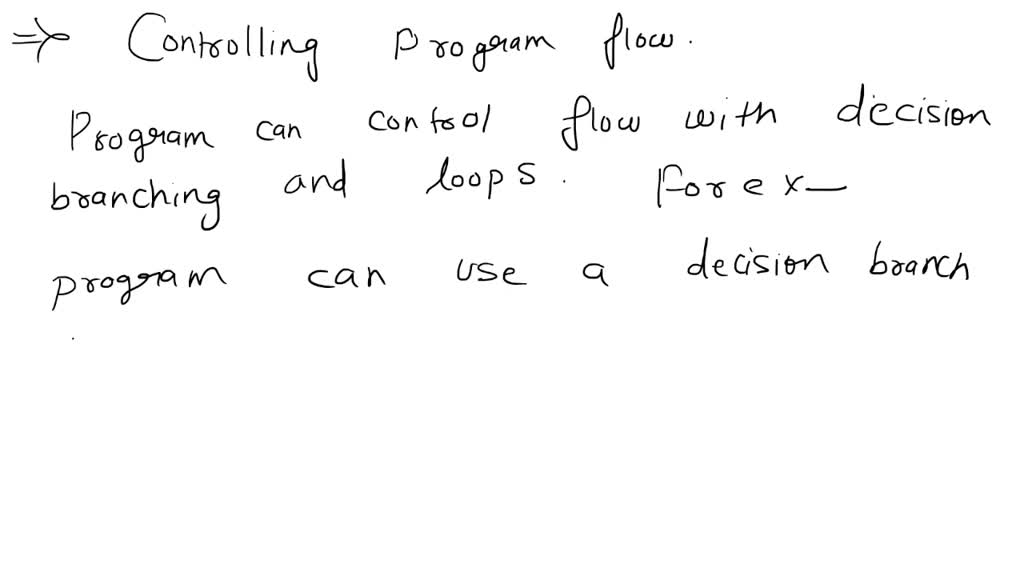 ⇒ Controlling program flow.
Program can control flow with decision
branching and loops. For ex—
program can use a decision branch